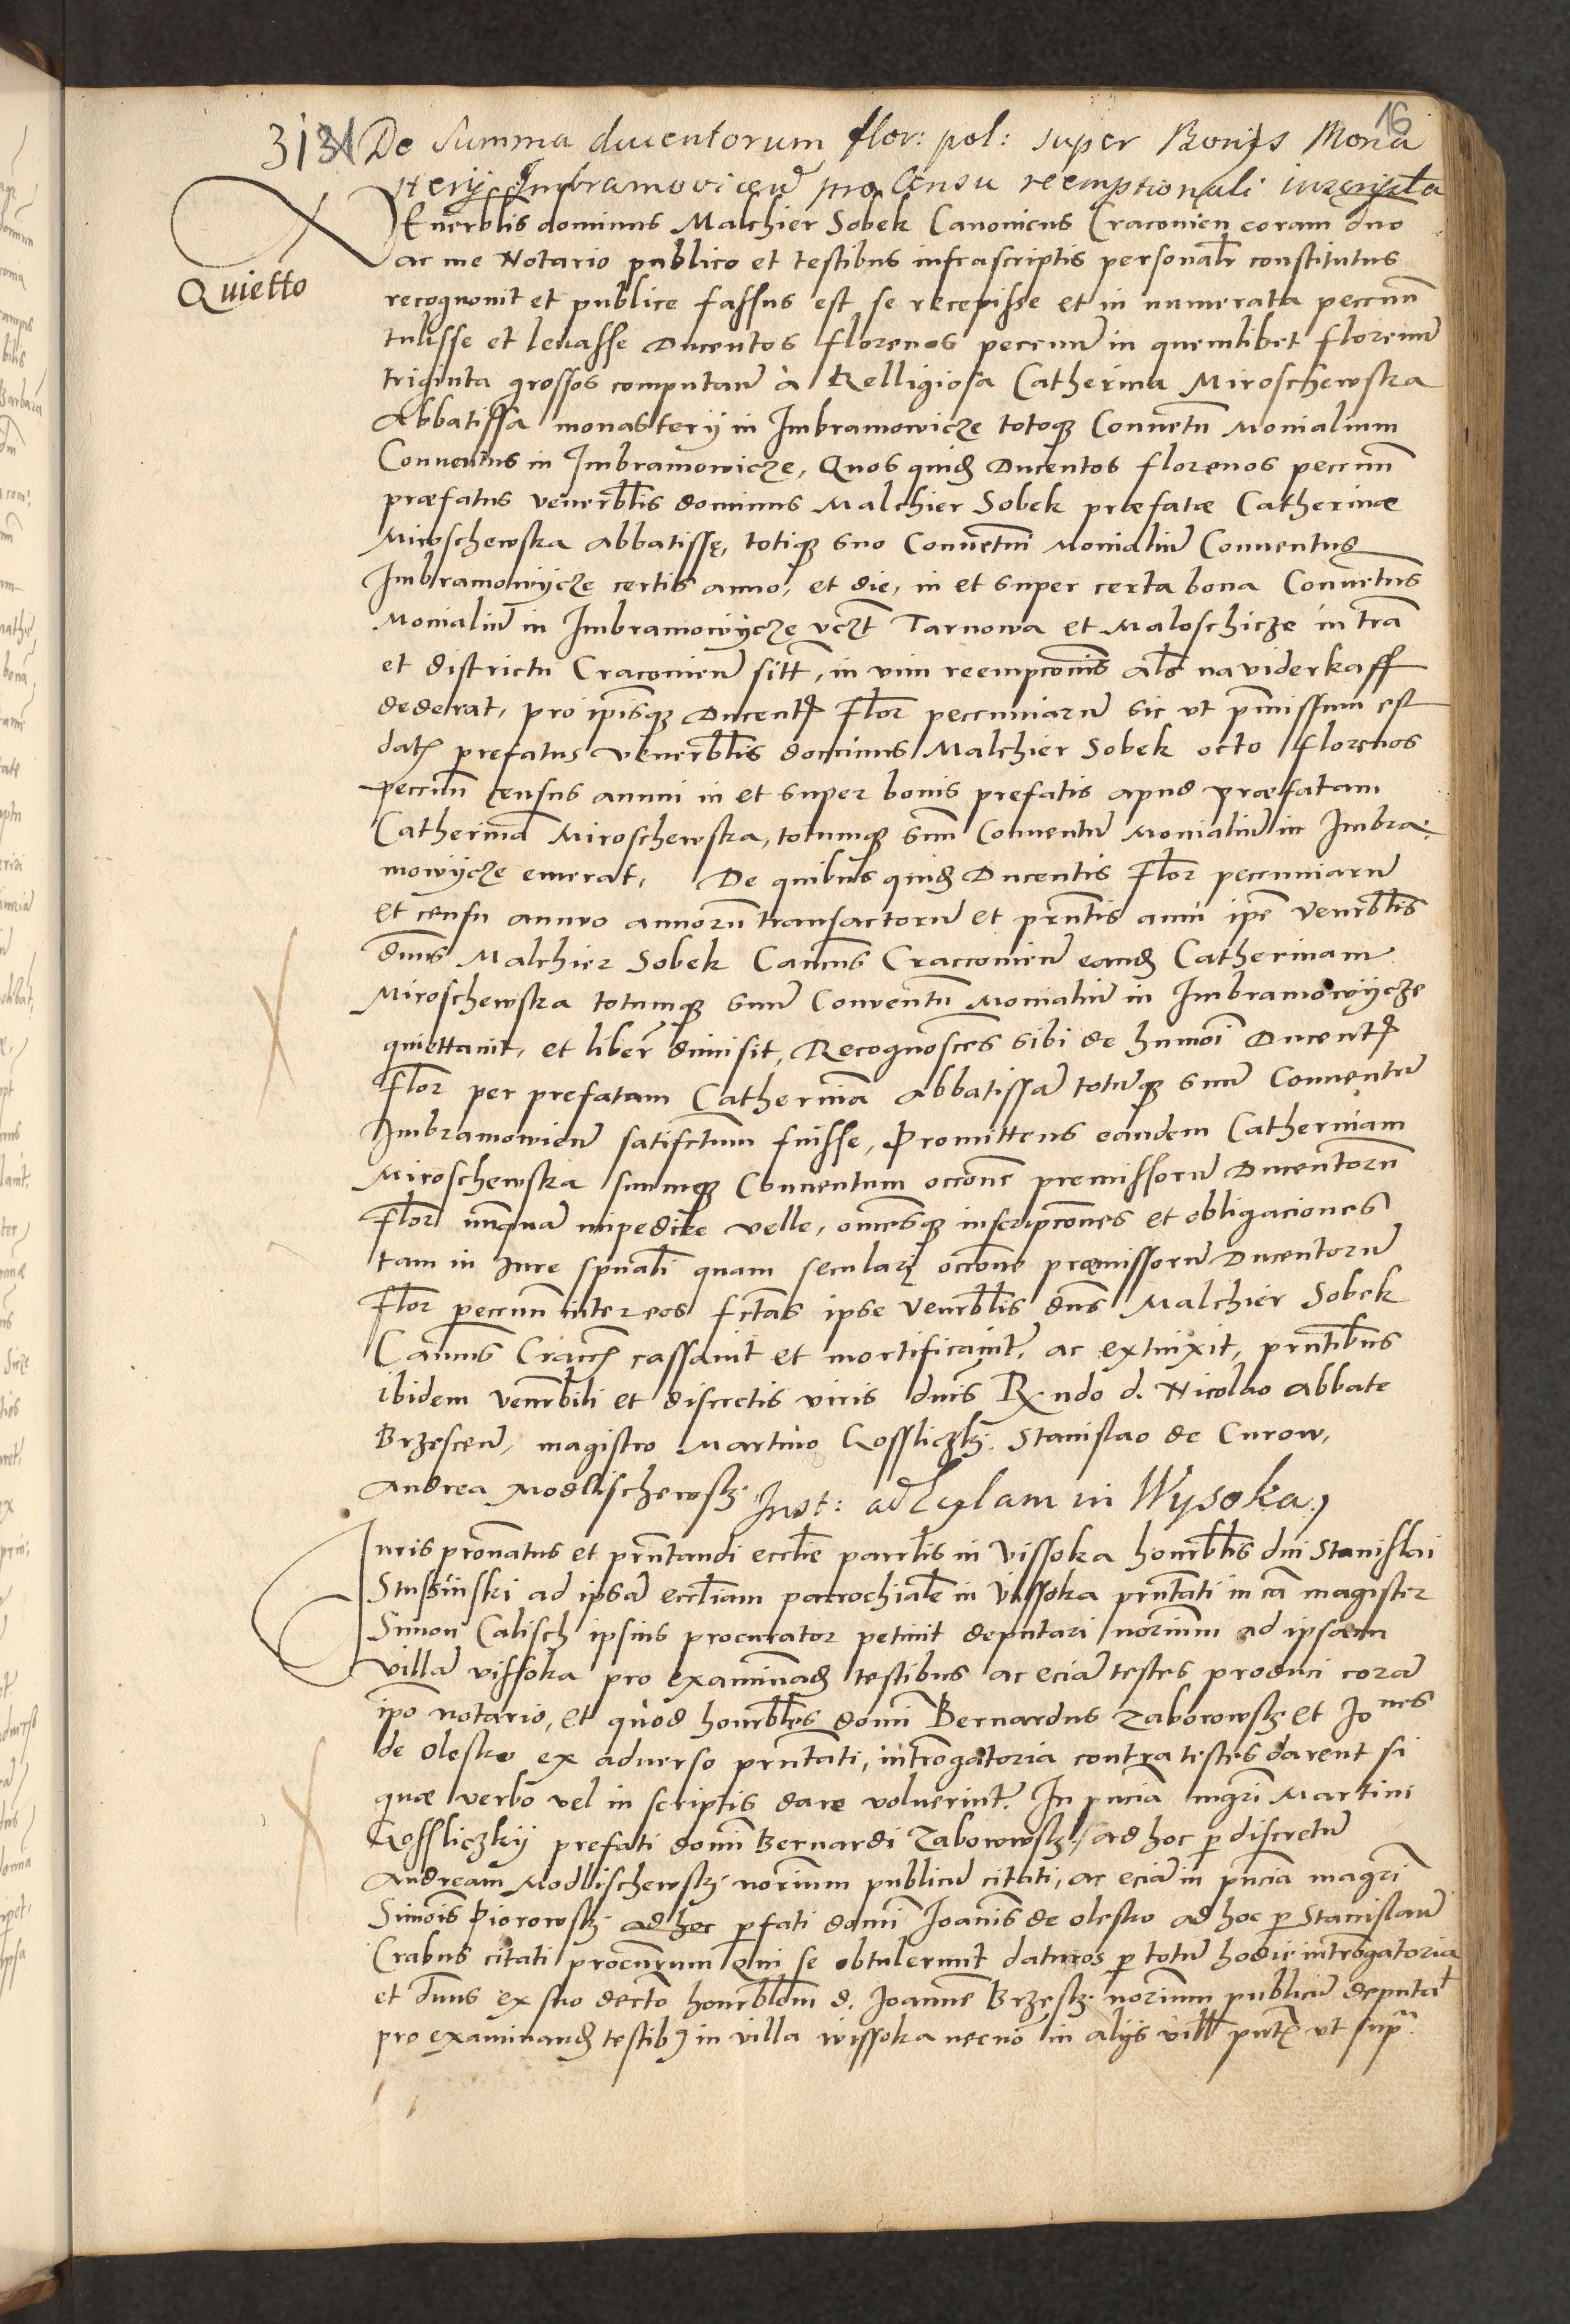 16
31 De Summa ducentorum flor: pol: super Bonis Mona
sterij Imbramovicen pro Censu reemptionali inscripta
Quietto
Venerblis dominus Malchier Sobek Canonicus Cracovien coram dno
ac me Notario publico et testibus infrascriptis personalr constitutus
recognovit et publice fassus est se recepisse et in numerata peccun
tulisse et levasse Ducentos florenos peccun in quemlibet florenum
triginta grossos computan à Relligiosa Catherina Miroschewska
Abbatissa monasterij in Imbramowicze totoq Conuetu Monialium
Conuentus in Imbramowicze, Quos quid Ducentos florenos peccun
præfatus venerblis dominus Malchier Sobek præfatæ Catherinæ
Miroschewska Abbatissę, totiq suo Conuetui Monialiu Conuentus
Imbramowijcze certis anno, et die, in et super certa bona Conuetus
Monialiu in Imbramowijcze vczt Tarnowa et Maloschicze in tra
et districtu Cracouien sitt, in vim reempcionis als na viderkaff
dederat, pro ipisq Ducent Flor peccuniaru sic ut pmissum est
dat prefatus Venerblis dominus Malchier Sobek octo florenos
peccun census annui in et super bonis prefatis apud præfatam
Catherina Miroschewska, totumq suu Conuentu Monialiu in Imbra:
mowijcze emerat, De quibus quid Ducentis Flor peccuniaru
et censu annuo annoru transactoru et prntis anni ipe Venerblis
dnus Malchier Sobek Canus Craccouien eand Catherinam
Miroschewska totumq suum Conuentu Monialiu in Imbramowijcze
quiettauit, et liber dimisit, Recognosces sibi de humoi Ducent
Flor per prefatam Catherina Abbatissa totumq suum Conuentu
Imbramouien satifctum fuisse, Promittens eandem Catherinam
Miroschewska suumq Conuentum occone premissoru Ducentoru
Flor nunqua impedire velle, omesq inscripcones et obligaciones
tam in iure spuali quam seculari occone præmissoru Ducentoru
Flor peccun inter eos fctas ipse Venerblis dns Malchier Sobek
Canus Cracc cassauit et mortificauit, ac extinxit, prntibus
ibidem Venerbili et discretis viris dnis Rndo d. Nicolao Abbate
Brzescen, magistro Martino Gossliczky Stanislao de Curow,
Andrea Modlischewsky Inst: ad Eccl'am in Wysoka
Iuris pronatus et prntandi ecclie parrlis in Vissoka honrblis dni Stanislai
Stussinski ad ipsa eccliam parrochiale in Vissoka prntati in ca magister
Simon Calisch ipsius procurator petiuit deputari norium ad ipsam
villa vissoka pro examinand testibus ac ecia testes produci cora
ipo notario, et quod honrbles domi Bernardus Zaborowsky et Jones
de Olesko ex aduerso prntati, introgatoria contra testes darent si
quæ verbo vel in scriptis dare voluerint. In pncia mgri Martini
Gossliczkij prefati domi Bernardi Zaborowsky ad hoc p discretu
Andream Modlischewsky norium publicu citati, ac ecia in pncia magri
Simois Piorowsky ad hoc pfati domi Joanis de Olesko ad hoc p Stanislau
Crabus citati procurum Qui se obtulerunt daturos p totu hodie introgatoria
et dnus ex suo decto honrblem d. Joanne Brzesky norium publicu deputat
pro examinand testib in villa wissoka necno in alijs vill put ut supa